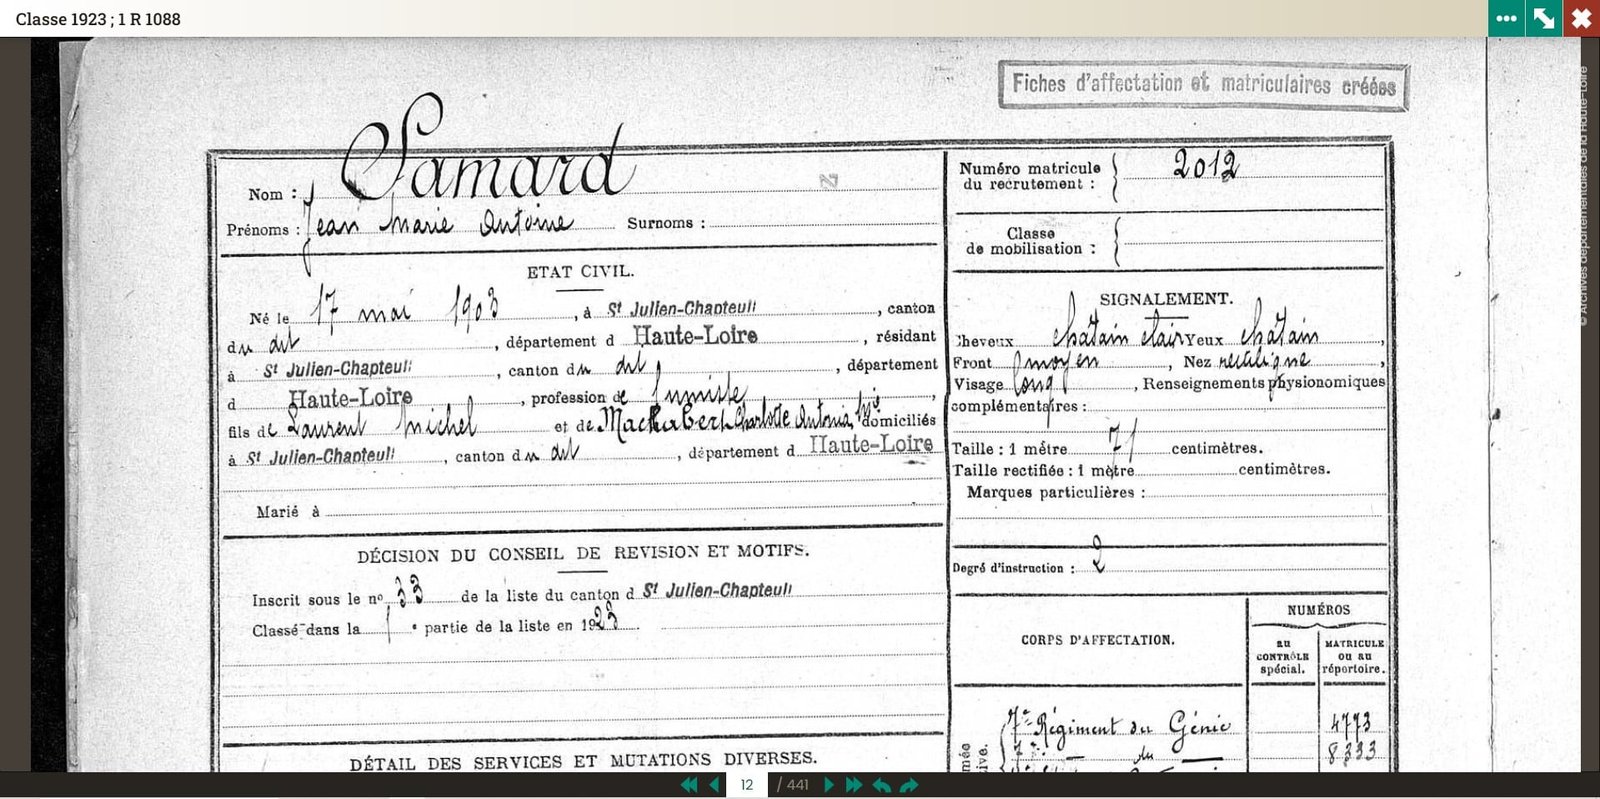 Classe 1923 ; 1 R 1088
Fiches d'affectation et matriculaires créées
Nom : Samard
Prénoms : Jean Marie Antoine Surnoms :
ETAT CIVIL.
Né le 17 mai 1903, à St Julien-Chapteuil, canton
du dit, département d Haute-Loire, résidant
à St Julien-Chapteuil, canton du dit, département
d Haute-Loire, profession de fumiste,
fils de Laurent Michel et de Charlotte Antonia domiciliés
à St Julien-Chapteuil, canton du dit, département d Haute-Loire
Marié à
DÉCISION DU CONSEIL DE REVISION ET MOTIFS.
Inscrit sous le no 33 de la liste du canton d St Julien-Chapteuil
Classé dans la 1e partie de la liste en 1923.
DÉTAIL DES SERVICES ET MUTATIONS DIVERSES.
Numéro matricule du recrutement : 2012
Classe de mobilisation :
SIGNALEMENT.
Cheveux chatain clair Yeux chatain,
Front moyen, Nez rectiligne,
Visage long, Renseignements physionomiques
complémentaires :
Taille : 1 mètre 71 centimètres.
Taille rectifiée : 1 mètre centimètres.
Marques particulières :
Degré d'instruction : 2
CORPS D'AFFECTATION.
NUMÉROS
au CONTRÔLE spécial.
MATRICULE ou au répertoire.
7e Régiment du Génie 4773
7e — du — 8333
© Archives départementales de la Haute-Loire
12 / 441